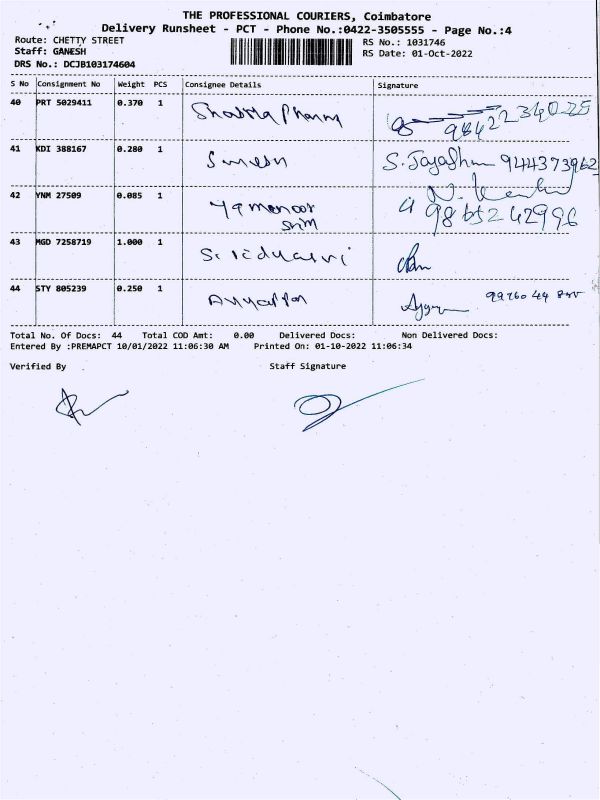 THE PROFESSIONAL COURIERS, Coimbatore
Delivery Runsheet - PCT - Phone No.:0422-3505555 - Page No.:4
Route: CHETTY STREET
RS No.: 1031746
Staff: GANESH
RS Date: 01-Oct-2022
DRS No.: DCJB103174604
S No Consignment No Weight PCS Consignee Details Signature
40 PRT 5029411 0.370 1 Pharm
41 KDI 388167 0.280 1 Suresh S. 944373962
42 YNM 27509 0.085 1
9865242996
43 MGD 7258719 1.000 1
44 STY 805239 0.250 1 Ayyappan
Total No. Of Docs: 44 Total COD Amt: 0.00 Delivered Docs: Non Delivered Docs:
Entered By :PREMAPCT 10/01/2022 11:06:30 AM Printed On: 01-10-2022 11:06:34
Verified By Staff Signature